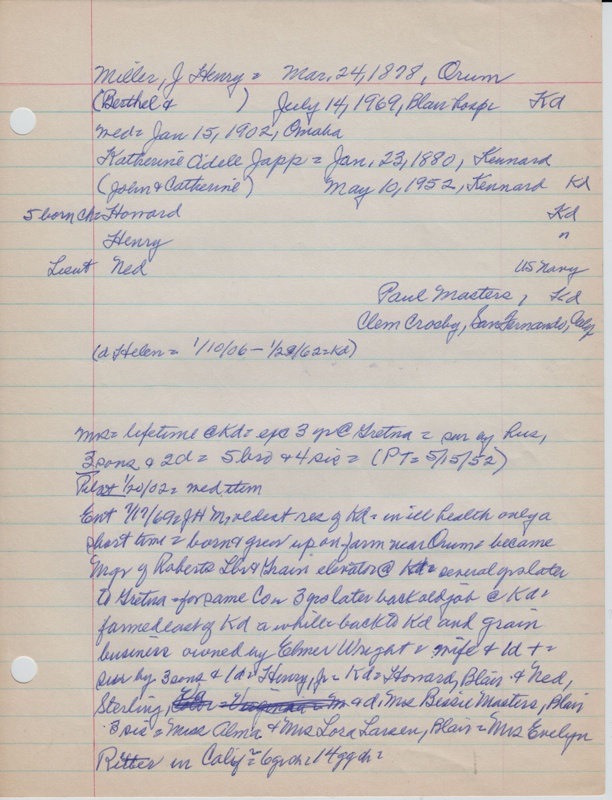 Miller, J Henry = Mar, 24, 1878, Orum
(Berthel & ) July 14, 1969, Blair hospi Kd
med= Jan 15, 1902, Omaha
Katherine Adell Japp = Jan, 23, 1880, Kennard
(John & Catherine) May 10, 1952, Kennard Kd
5 born ch= Howard Kd
Henry "
Lieut Ned US Navy
Paul Masters, Kd
Clem Crosby, San Fernando, Calif
(d Helen = 1/10/06 - 1/29/62 = Kd)
Mrs = lifetime @ Kd = exc 3 yr @ Gretna = sur by hus,
3 sons & 2d = 5 bro & 4 sis = (PT = 5/15/52)
Pilot 1/20/02 = med item
Ent 7/17/69 = JH M, oldest res of Kd = in ill health only a
short time = born & grew up on farm near Orum = became
Mgr of Roberts Lbr & Grain elevator @ Kd = several yrs later
to Gretna = for same Co = 3 yrs later back old job @ Kd =
farmed east of Kd a while = back to Kd and grain
business owned by Elmer Wright = wife & 1d + =
sur by 3 sons & 1d = Henry, Jr = Kd = Howard, Blair & Ned,
Sterling, & d, Mrs Bissie Masters, Blair
3 sis = Miss Alma & Mrs Lora Larsen, Blair = Mrs Evelyn
Ritter in Calif = 6 gr ch = 14 gg ch =